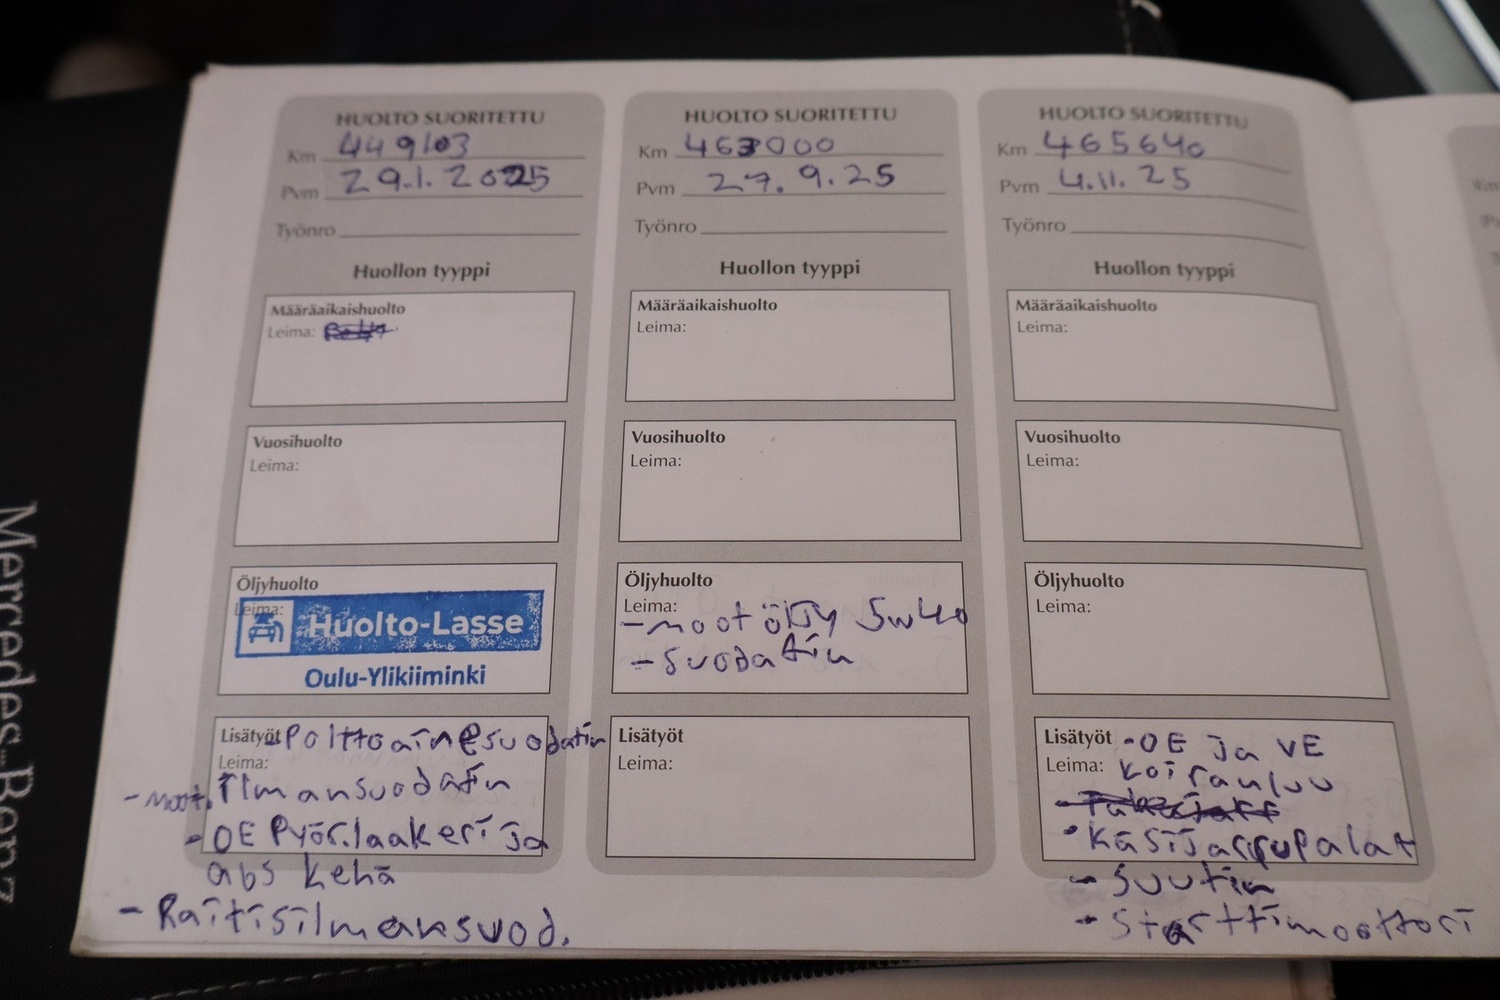 HUOLTO SUORITETTU
Km 449103
Pvm 29.1.2025
Työnro
Huollon tyyppi
Määräaikaishuolto
Leima:
Vuosihuolto
Leima:
Öljyhuolto
Leima:
Huolto-Lasse
Oulu-Ylikiiminki
Lisätyöt -Polttoainesuodatin
Leima:
-moot. ilmansuodatin
- OE Pyör.laakeri ja
abs kehä
- Raitisilmansuod.
HUOLTO SUORITETTU
Km 463000
Pvm 27.9.25
Työnro
Huollon tyyppi
Määräaikaishuolto
Leima:
Vuosihuolto
Leima:
Öljyhuolto
Leima:
-mootöljy 5w40
- suodatin
Lisätyöt
Leima:
HUOLTO SUORITETTU
Km 465640
Pvm 4.11.25
Työnro
Huollon tyyppi
Määräaikaishuolto
Leima:
Vuosihuolto
Leima:
Öljyhuolto
Leima:
Lisätyöt -OE ja VE
Leima: koiranluu
- Käsijarrupalat
- Suutin
- Starttimoottori
Mercedes-Benz